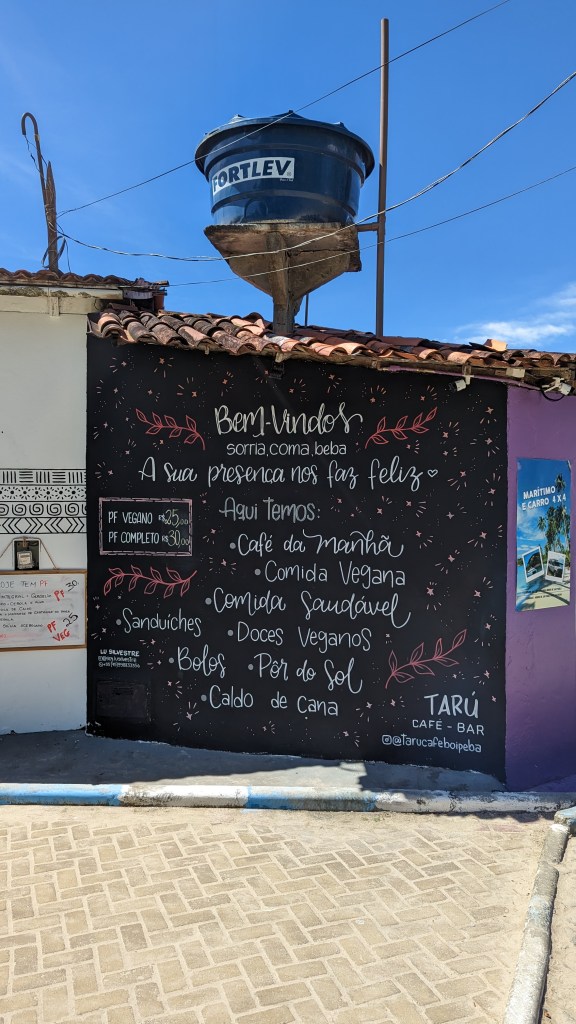 FORTLEV
Bem-Vindos
sorria, coma, beba
A sua presença nos faz feliz
PF VEGANO R$25,00
PF COMPLETO R$30,00
Aqui Temos:
•Café da manhã
•Comida Vegana
•Comida Saudável
•Sanduíches
•Doces Veganos
•Bolos
•Pôr do Sol
•Caldo de Cana
LU SILVESTRE
TARÚ
CAFÉ - BAR
@tarucafeboipeba
HOJE TEM PF
PF 30
PF VEG 25
MARÍTIMO
E CARRO 4 X 4